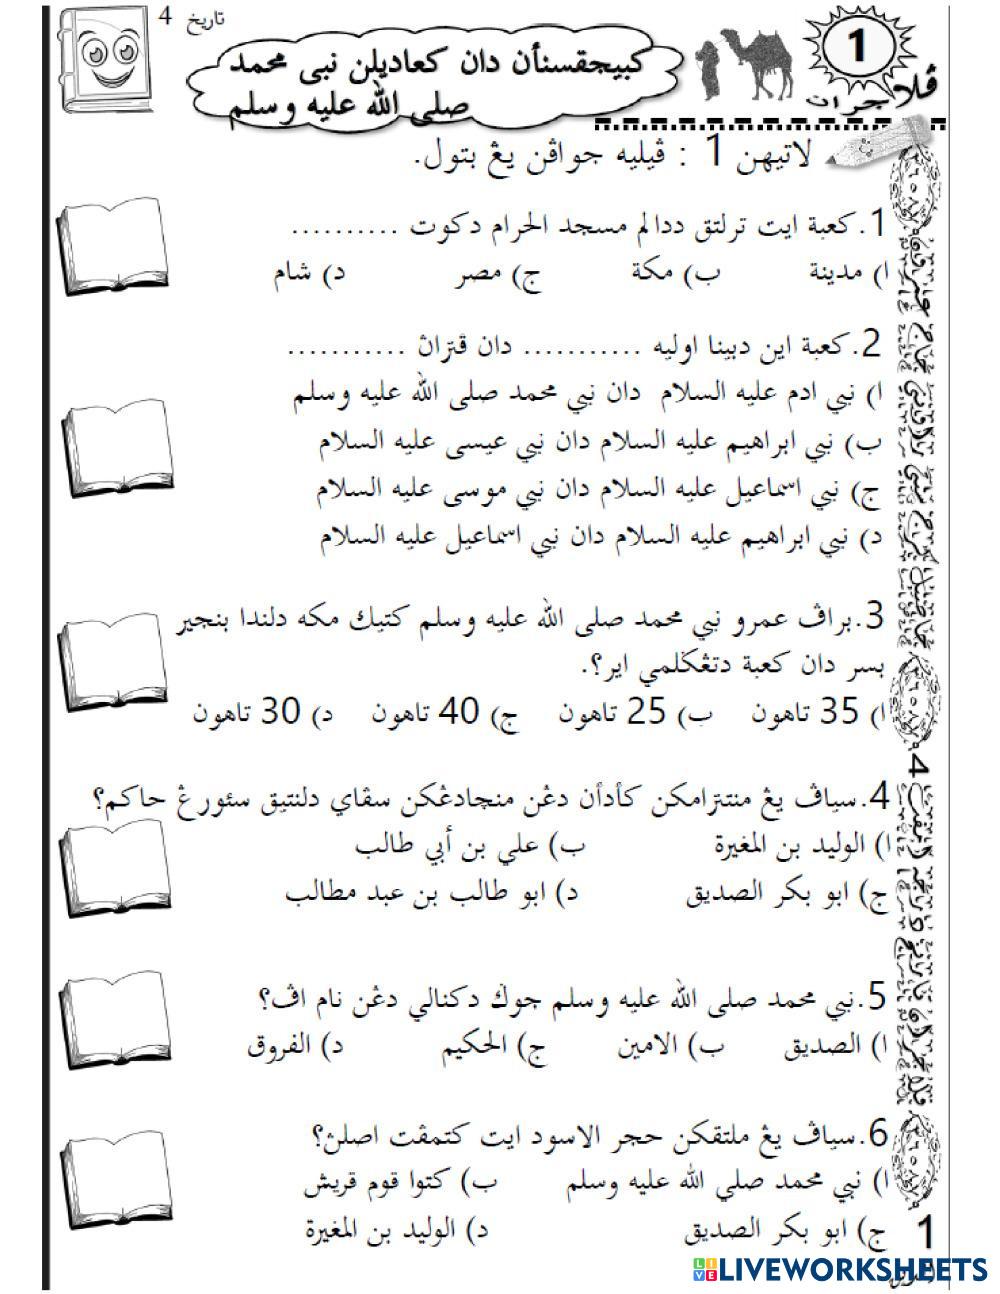 تاريخ 4
1
ڤلاجرن
كبيجقسنأن دان كعاديلن نبي محمد
صلى الله عليه وسلم
لاتيهن 1 : ڤيليه جواڤن يڠ بتول.
1. كعبة ايت ترلتق ددالم مسجد الحرام دكوت ..........
ا) مدينة ب) مكة ج) مصر د) شام
2. كعبة اين دبينا اوليه ........... دان ڤتراڽ ...........
ا) نبي ادم عليه السلام دان نبي محمد صلى الله عليه وسلم
ب) نبي ابراهيم عليه السلام دان نبي عيسى عليه السلام
ج) نبي اسماعيل عليه السلام دان نبي موسى عليه السلام
د) نبي ابراهيم عليه السلام دان نبي اسماعيل عليه السلام
3. براڤ عمرو نبي محمد صلى الله عليه وسلم كتيك مكه دلندا بنجير
بسر دان كعبة دتڠݢلمي اير؟.
ا) 35 تاهون ب) 25 تاهون ج) 40 تاهون د) 30 تاهون
4. سياڤ يڠ منتترامكن كأدأن دڠن منچادڠكن سڤاي دلنتيق سئورڠ حاكم؟
ا) الوليد بن المغيرة ب) علي بن أبي طالب
ج) ابو بكر الصديق د) ابو طالب بن عبد مطالب
5. نبي محمد صلى الله عليه وسلم جوݢ دكنالي دڠن نام اڤ؟
ا) الصديق ب) الامين ج) الحكيم د) الفروق
6. سياڤ يڠ ملتقكن حجر الاسود ايت كتمڤت اصلڽ؟
ا) نبي محمد صلي الله عليه وسلم ب) كتوا قوم قريش
ج) ابو بكر الصديق د) الوليد بن المغيرة
1
LIVEWORKSHEETS